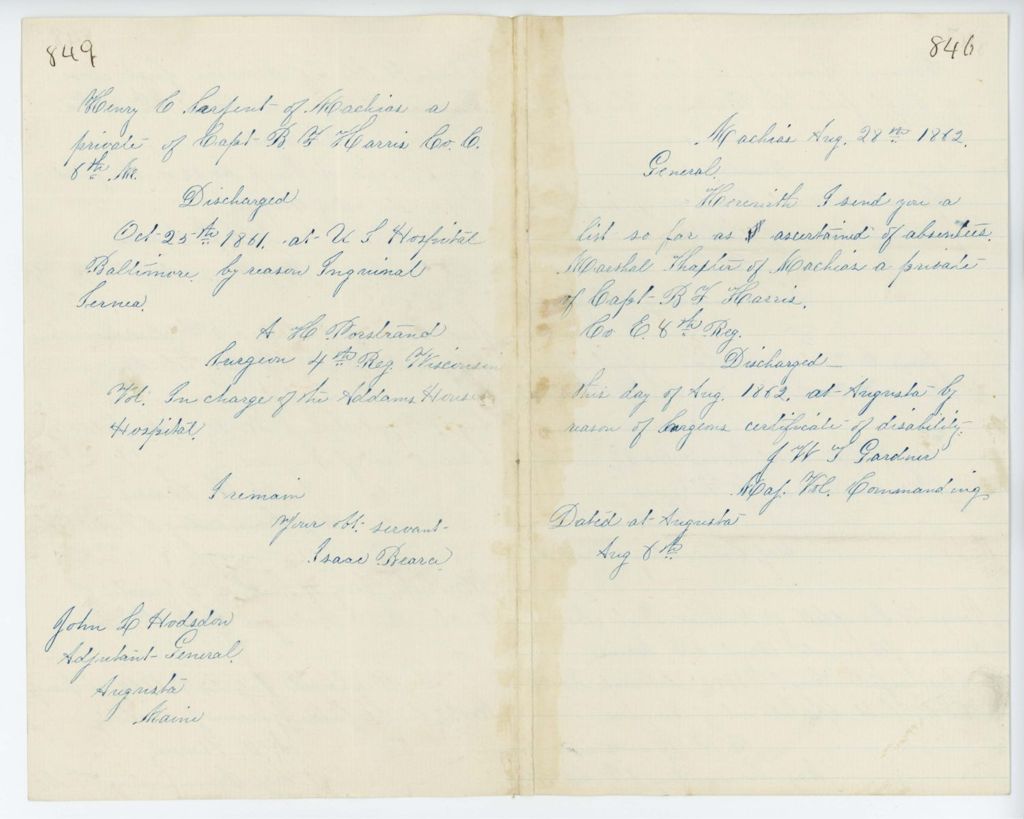 846
Machias Aug. 28th 1862.
General.
Herewith I send you a
list so far as I ascertained of absentees.
Marshal of Machias a private
of Capt B F Harris,
Co E. 6th Reg.
Discharged
this day of Aug. 1862. at Augusta by
reason of Surgeons certificate of disability.
J W T Gardner
Maj. Vol. Commanding
Dated at Augusta
Aug 6th
849
Henry C of Machias a
private of Capt B F Harris Co. C.
6th Me.
Discharged
Oct 25th 1861. at U S Hospital
Baltimore by reason Inguinal
A H
Surgeon 4th Reg Wisconsin
Vol. In charge of the Addams House
Hospital.
I remain
Your obt. servant
Isaac
John L Hodsdon
Adjutant General.
Augusta
Maine